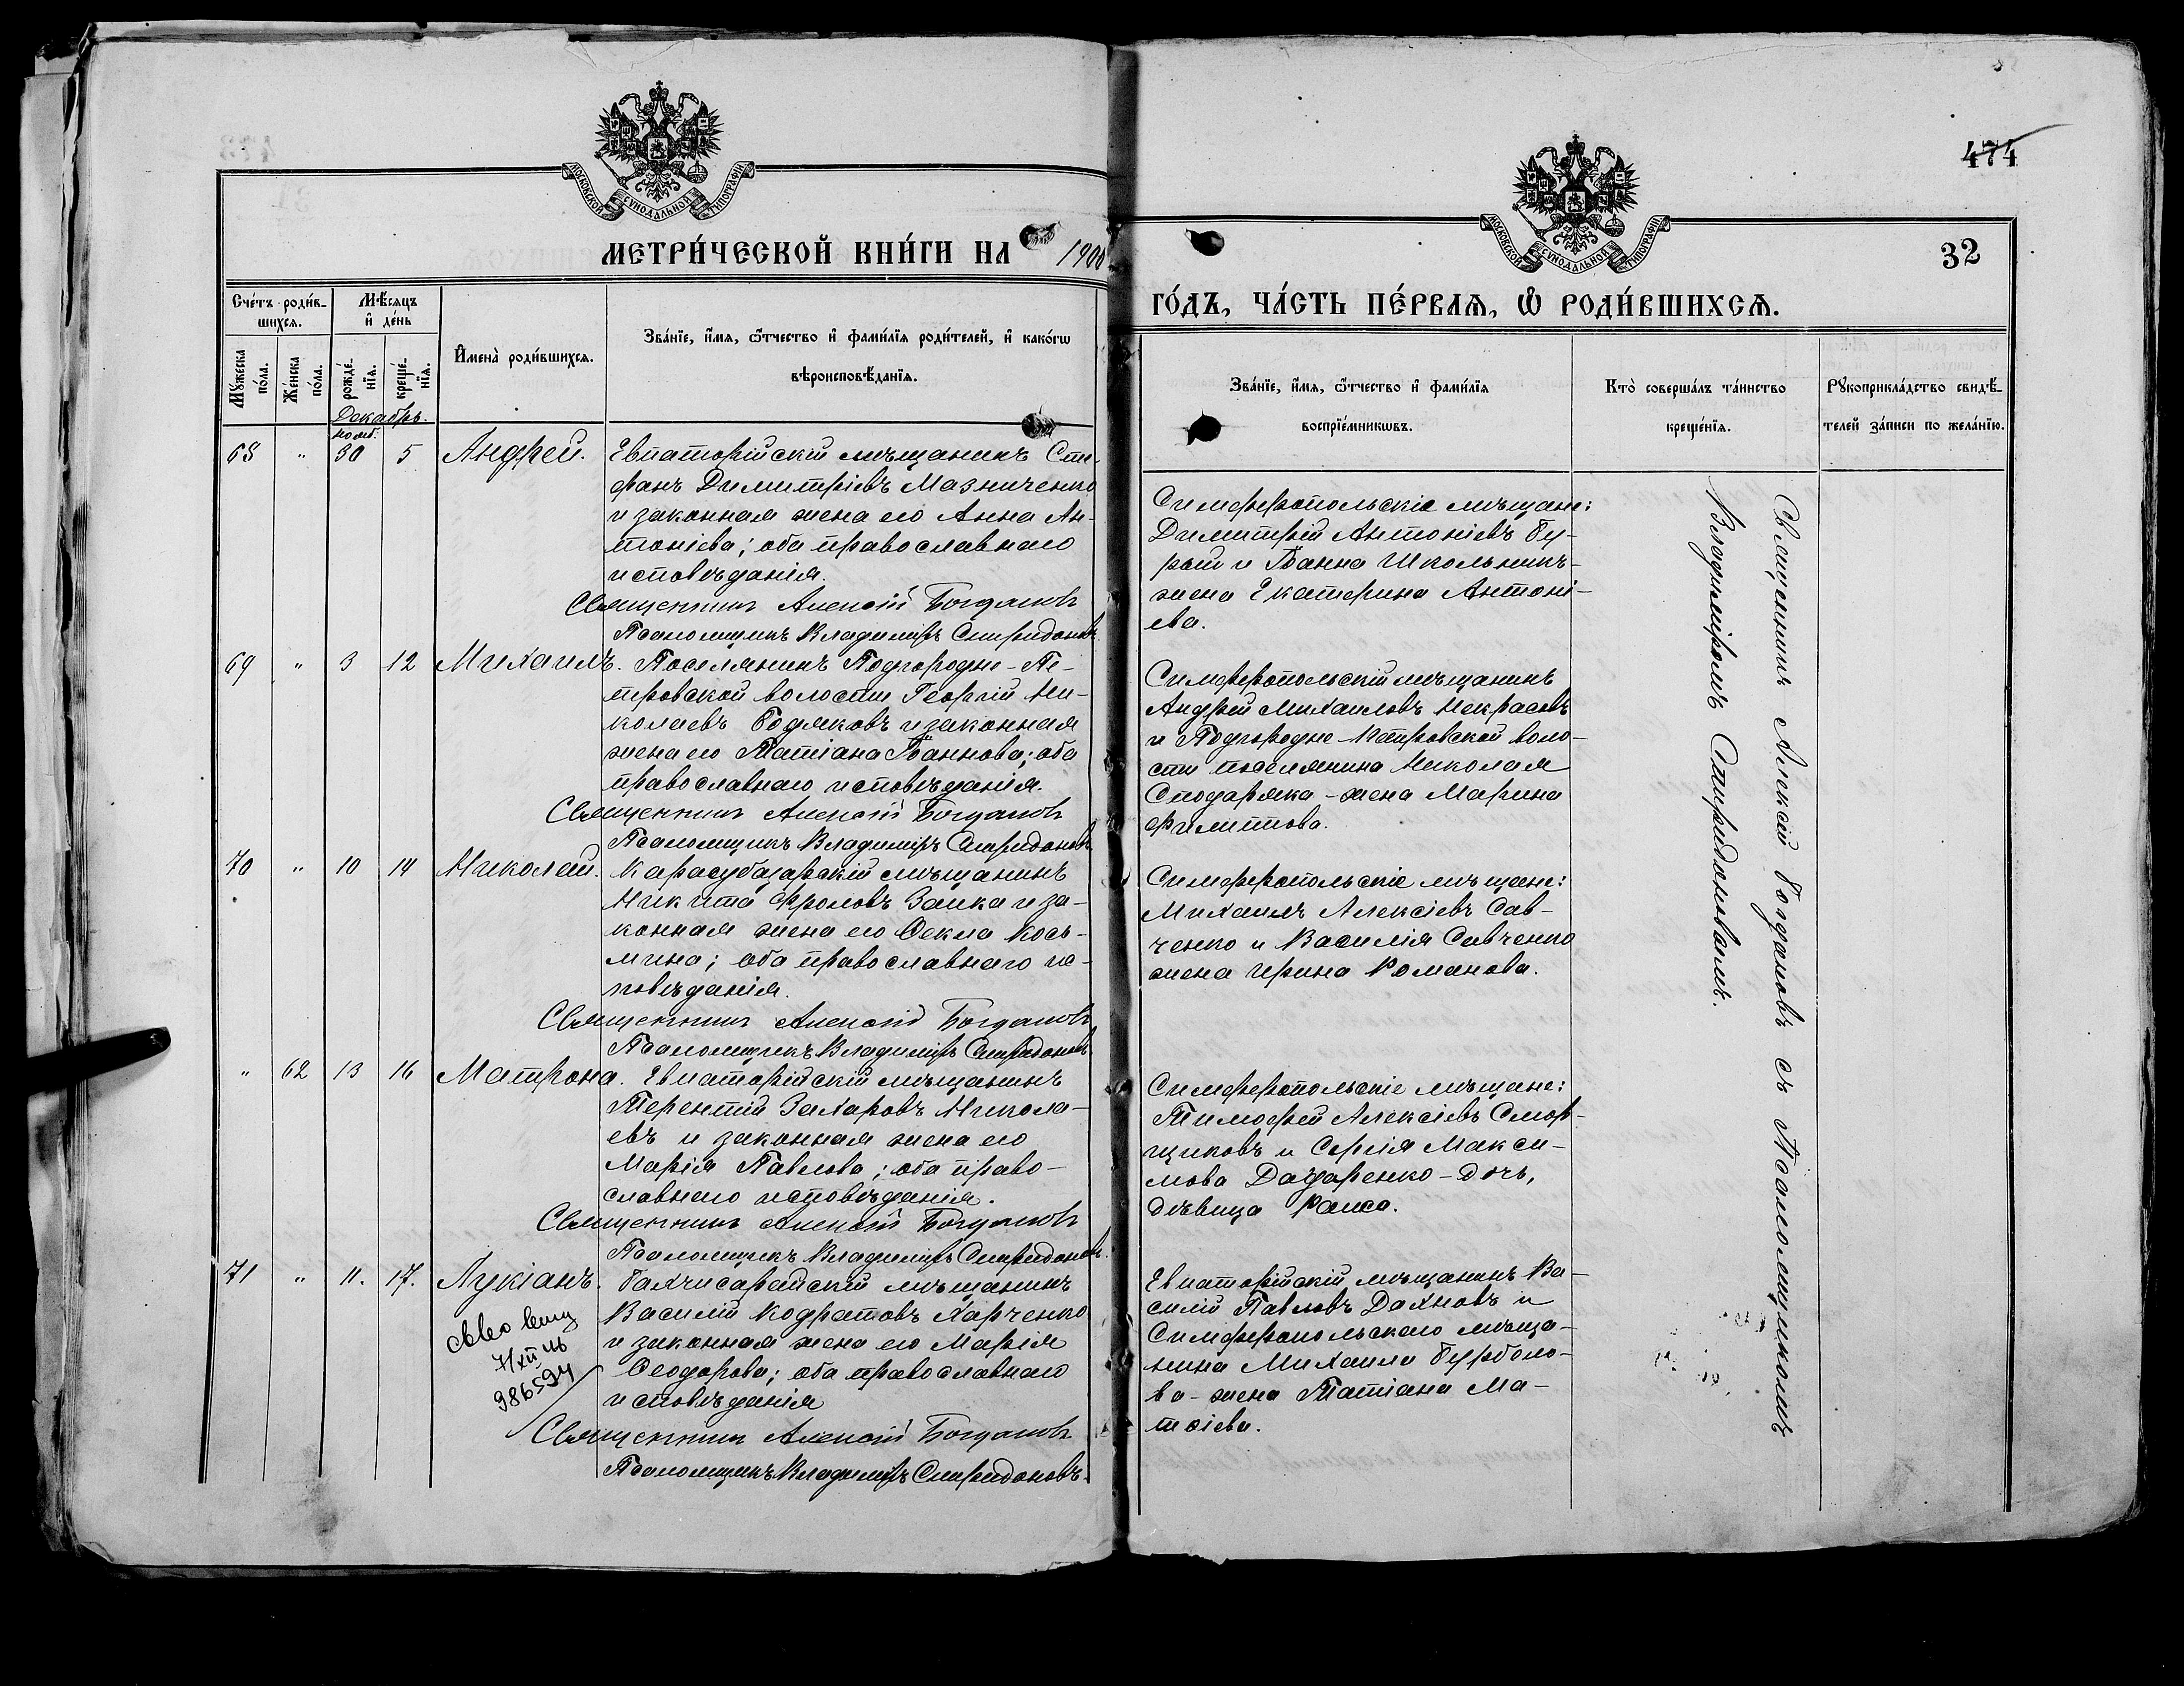 МОСКОВСКОЙ СѴНОДАЛЬНОЙ ТИПОГРАФІИ
МЕТРИ́ЧЕСКОЙ КНИ́ГИ НА 1900
Сче́тъ роди́в-
шихсѧ.
Мѣ́сѧцъ
и҆ де́нь
Мꙋ́жеска по́ла.
Же́нска по́ла.
рожде́-
нїѧ.
креще́-
нїѧ.
И҆мена̀ роди́вшихсѧ.
Зва́нїе, и҆́мѧ, ѻ҆́тчество и҆ фами́лїѧ роди́телей, и҆ како́гѡ
вѣроисповѣ́данїѧ.
Декабрь.
нояб.
68 " 30 5 Андрей. Евпаторійскій мѣщанинъ Сте-
фанъ Димитріевъ Мазниченко
и законная жена его Анна Ан-
тоніева; оба православнаго
исповѣданія.
Священникъ Алексій Богдановъ
Псаломщикъ Владиміръ Спиридоновъ
69 " 3 12 Михаилъ. Поселянинъ Подгородне-Пе-
тровской волости Георгій Ни-
колаевъ Годяковъ и законная
жена его Татіана Іоаннова; оба
православнаго исповѣданія.
Священникъ Алексій Богдановъ
Псаломщикъ Владиміръ Спиридоновъ
70 " 10 14 Николай. Карасубазарскій мѣщанинъ
Никита Фроловъ Заика и за-
конная жена его Ѳекла Кось-
мина; оба православнаго ис-
повѣданія.
Священникъ Алексій Богдановъ
Псаломщикъ Владиміръ Спиридоновъ
" 62 13 16 Матрона. Евпаторійскій мѣщанинъ
Терентій Захаровъ Никола-
евъ и законная жена его
Марія Павлова; оба право-
славнаго исповѣданія.
Священникъ Алексій Богдановъ
Псаломщикъ Владиміръ Спиридоновъ.
71 " 11. 17. Лукіанъ. Бахчисарайскій мѣщанинъ
Василій Кодратовъ Харченко
и законная жена его Марія
Ѳеодорова; оба православнаго
исповѣданія
Священникъ Алексій Богдановъ
Псаломщикъ Владиміръ Спиридоновъ.
986594
474
МОСКОВСКОЙ СѴНОДАЛЬНОЙ ТИПОГРАФІИ
32
ГО́ДЪ, ЧА́СТЬ ПЕ́РВАѦ, Ѡ҆ РОДИ́ВШИХСѦ.
Зва́нїе, и҆́мѧ, ѻ҆́тчество и҆ фами́лїѧ
воспрїе́мникѡвъ.
Кто̀ соверша́лъ та́инство
креще́нїѧ.
Рꙋкоприкла́дство свидѣ́-
телей за́писи по жела́нїю.
Симферопольскіе мѣщане:
Димитрій Антоніевъ Гу-
рый и Іоанна Школьникъ-
жена Екатерина Антоні-
ева.
Симферопольскій мѣщанинъ
Андрей Михаиловъ Некрасовъ
и Подгородне-Петровской воло-
сти поселянина Николая
Сподаряка - жена Марина
Филиппова.
Симферопольскіе мѣщане:
Михаилъ Алексіевъ Сав-
ченко и Василія Савченко
жена Ирина Романова.
Симферопольскіе мѣщане:
Тимофей Алексіевъ Смор-
щиковъ и Сергія Макси-
мова Дацаренко - дочь,
дѣвица Раиса.
Евпаторійскій мѣщанинъ Ва-
силій Павловъ Дахновъ и
Симферопольскаго мѣща-
нина Михаила Гурболо-
ва - жена Татіана Ма-
тѳіева.
Священникъ Алексій Богдановъ съ Псаломщикомъ
Владиміромъ Спиридоновымъ.